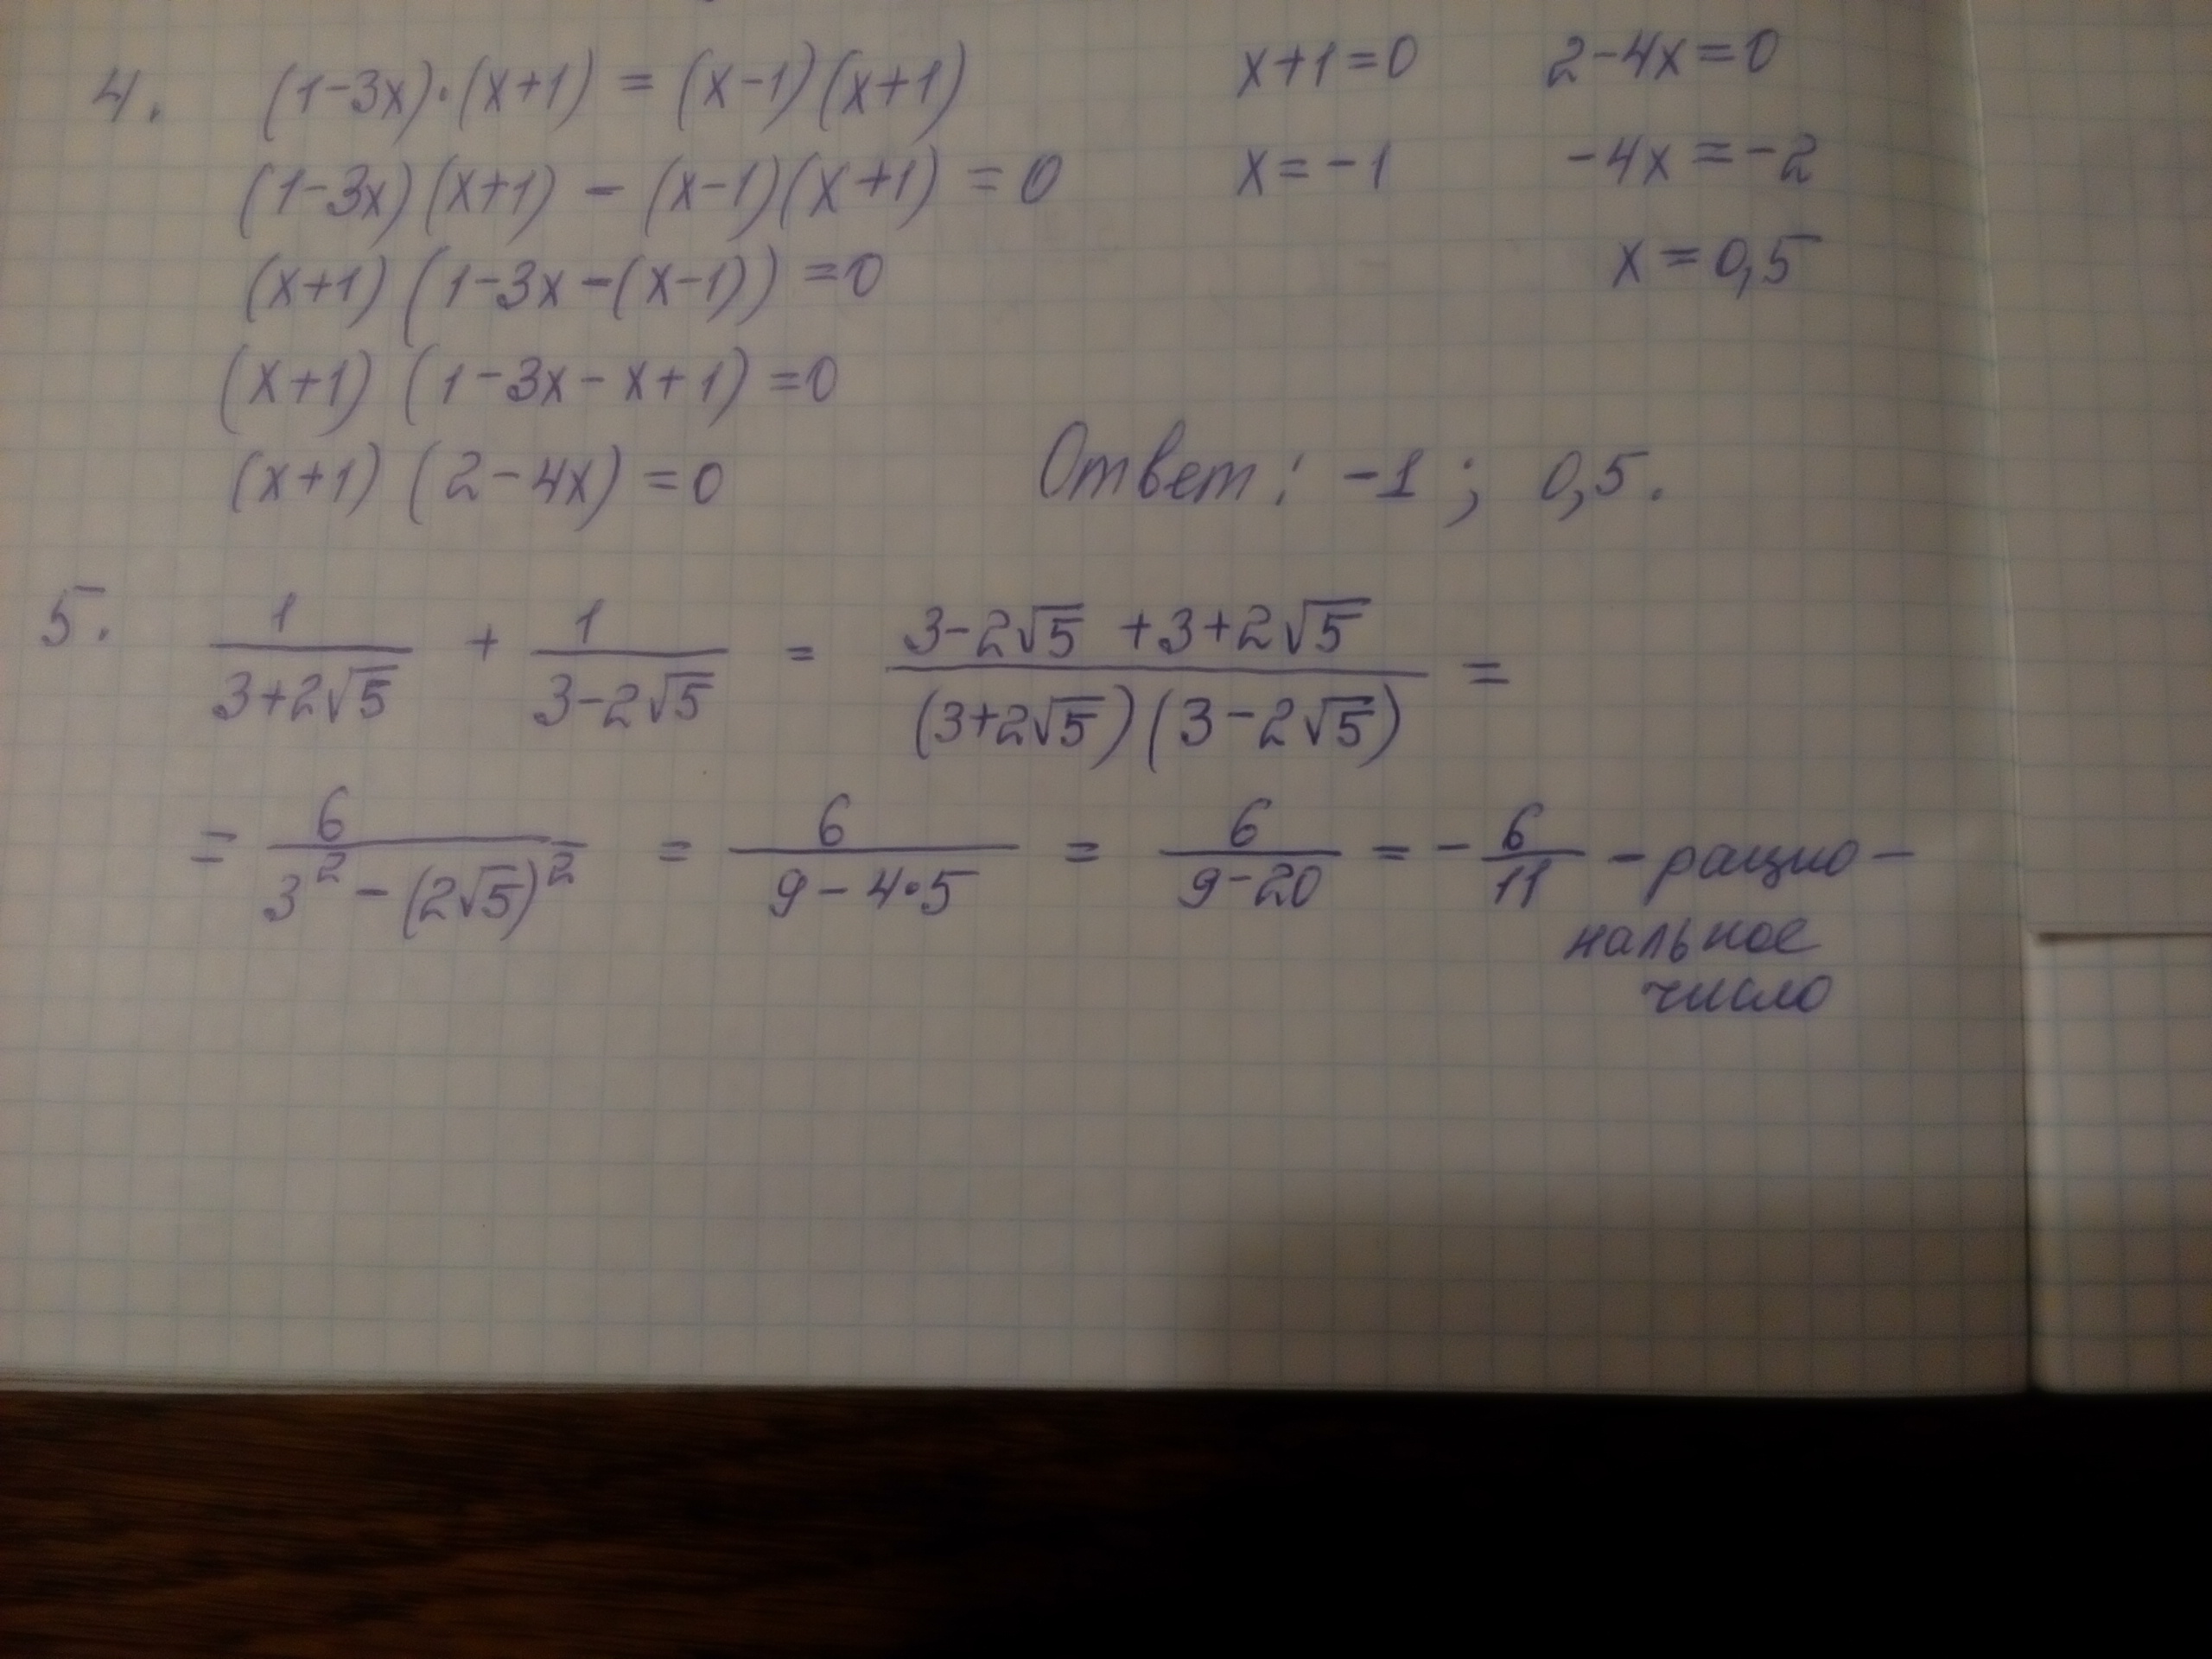 4. (1-3x)·(x+1) = (x-1)(x+1)
(1-3x)(x+1) - (x-1)(x+1) = 0
(x+1)(1-3x-(x-1)) = 0
(x+1)(1-3x-x+1) = 0
(x+1)(2-4x) = 0
x+1=0
x=-1
2-4x=0
-4x=-2
x=0,5
Ответ: -1; 0,5.
5. 1/(3+2√5) + 1/(3-2√5) = (3-2√5+3+2√5)/((3+2√5)(3-2√5)) =
= 6/(3²-(2√5)²) = 6/(9-4·5) = 6/(9-20) = -6/11 - рацио-
нальное
число